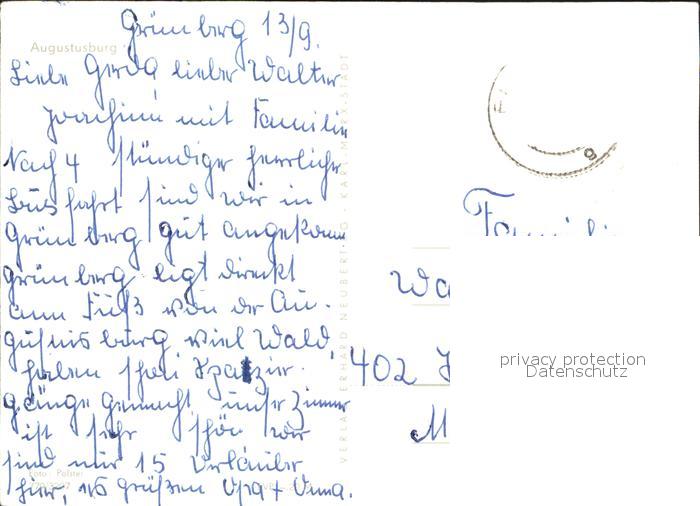 Grünberg 13/9.
Augustusburg
Liebe Gerda lieber Walter
Joachim mit Familie
Nach 4 stündiger herrlicher
Busfahrt sind wir in
Grünberg gut angekomm
Grünberg ligt direckt
am Fuß von der Au-
gustusburg viel Wald,
haben schon Spazier-
gänge gemacht unser Zimmer
ist sehr schön wir
sind nur 15 Urlauber
hier, es grüßen Opa + Oma.
Foto: Pelster
VERLAG ERHARD NEUBERT KG · KARL-MARX-STADT
Famili
Wa
402 H
M
privacy protection
Datenschutz